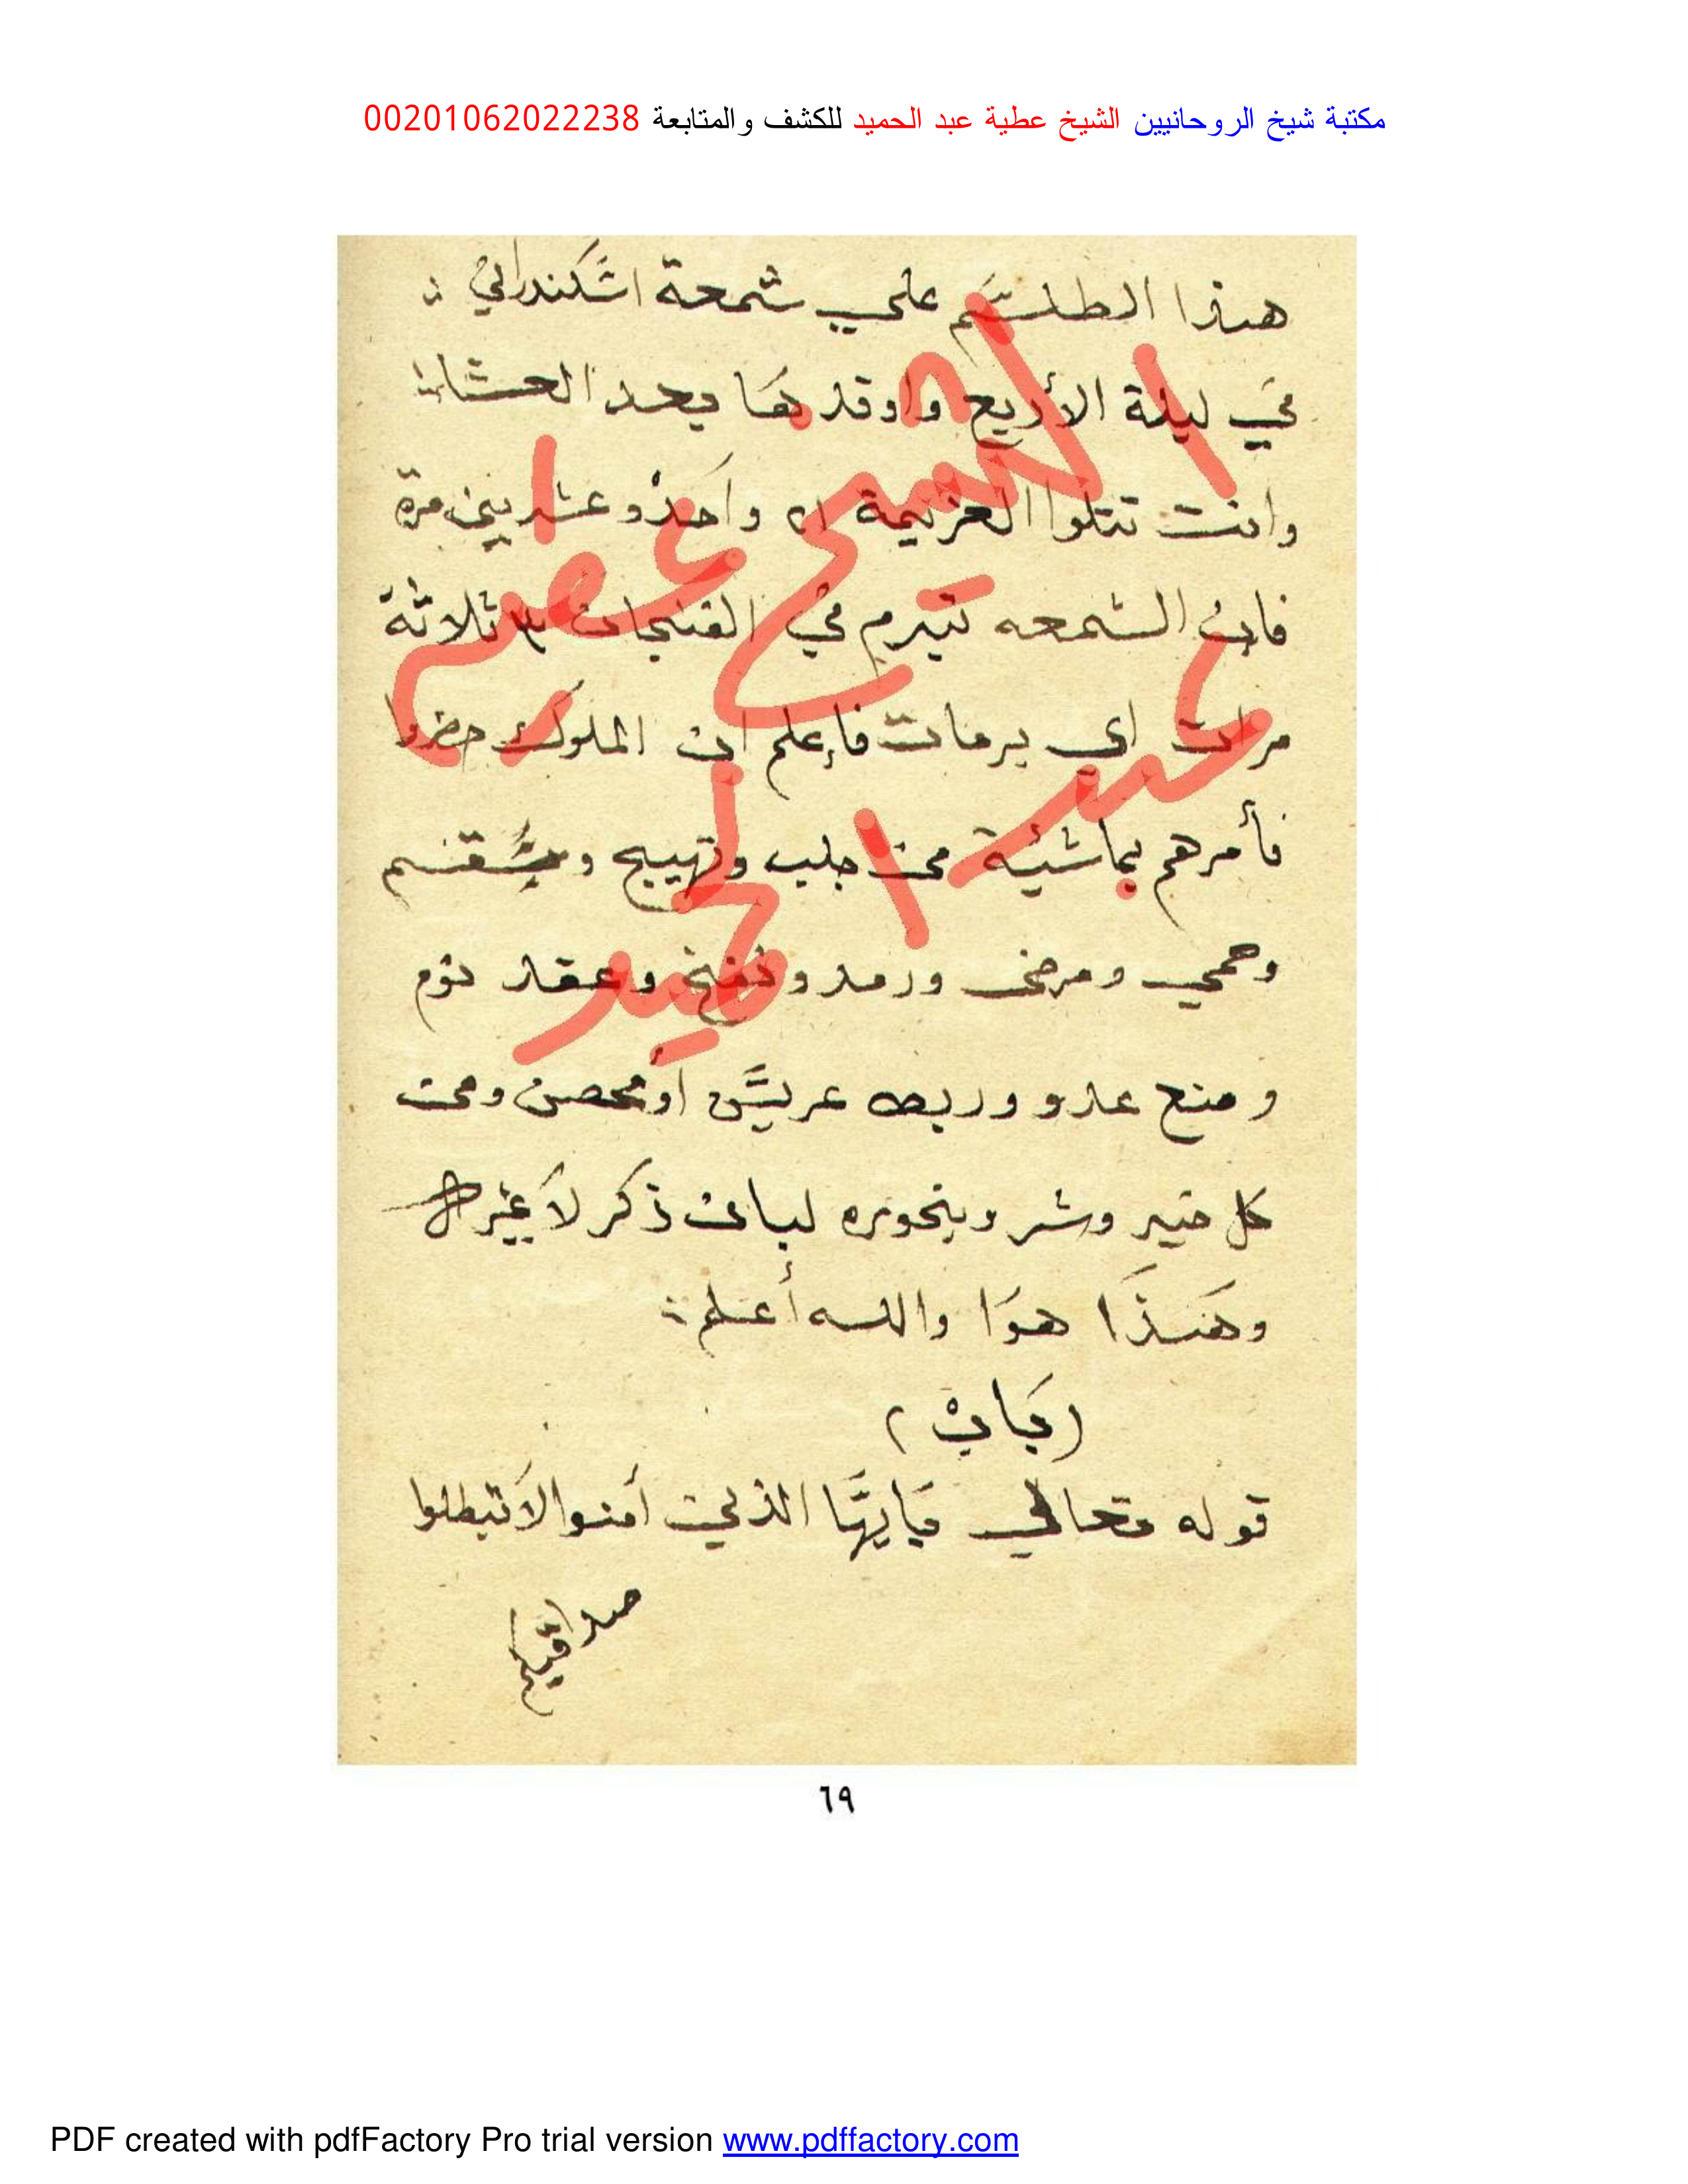 مكتبة شيخ الروحانيين الشيخ عطية عبد الحميد للكشف والمتابعة 00201062022238
هذا الطلسم علي شمعة اسكندراني
في ليلة الأربع واوقدها بعد العشاء
وانت تتلوا العزيمة ٢١ واحدو عشرين مرة
فان الشمعه تبرم في الفنجان ٣ ثلاثة
مرات اي برمات فإعلم ان الملوك حضروا
فأمرهم بما شئية من جلب وتهييج وسقم
وحمي ومرض ورمد ونفخ وعقد نوم
ومنع عدو وربط عريس أو محصن ومن
كل خير وشر وبخوره لبان ذكر لا غير
وهذا هوا والله أعلم
(باب)
قوله تعالي يايها الذين آمنوا لا تبطلوا
صدقتكم
الشيخ عطية
عبد الحميد
٦٩
PDF created with pdfFactory Pro trial version www.pdffactory.com